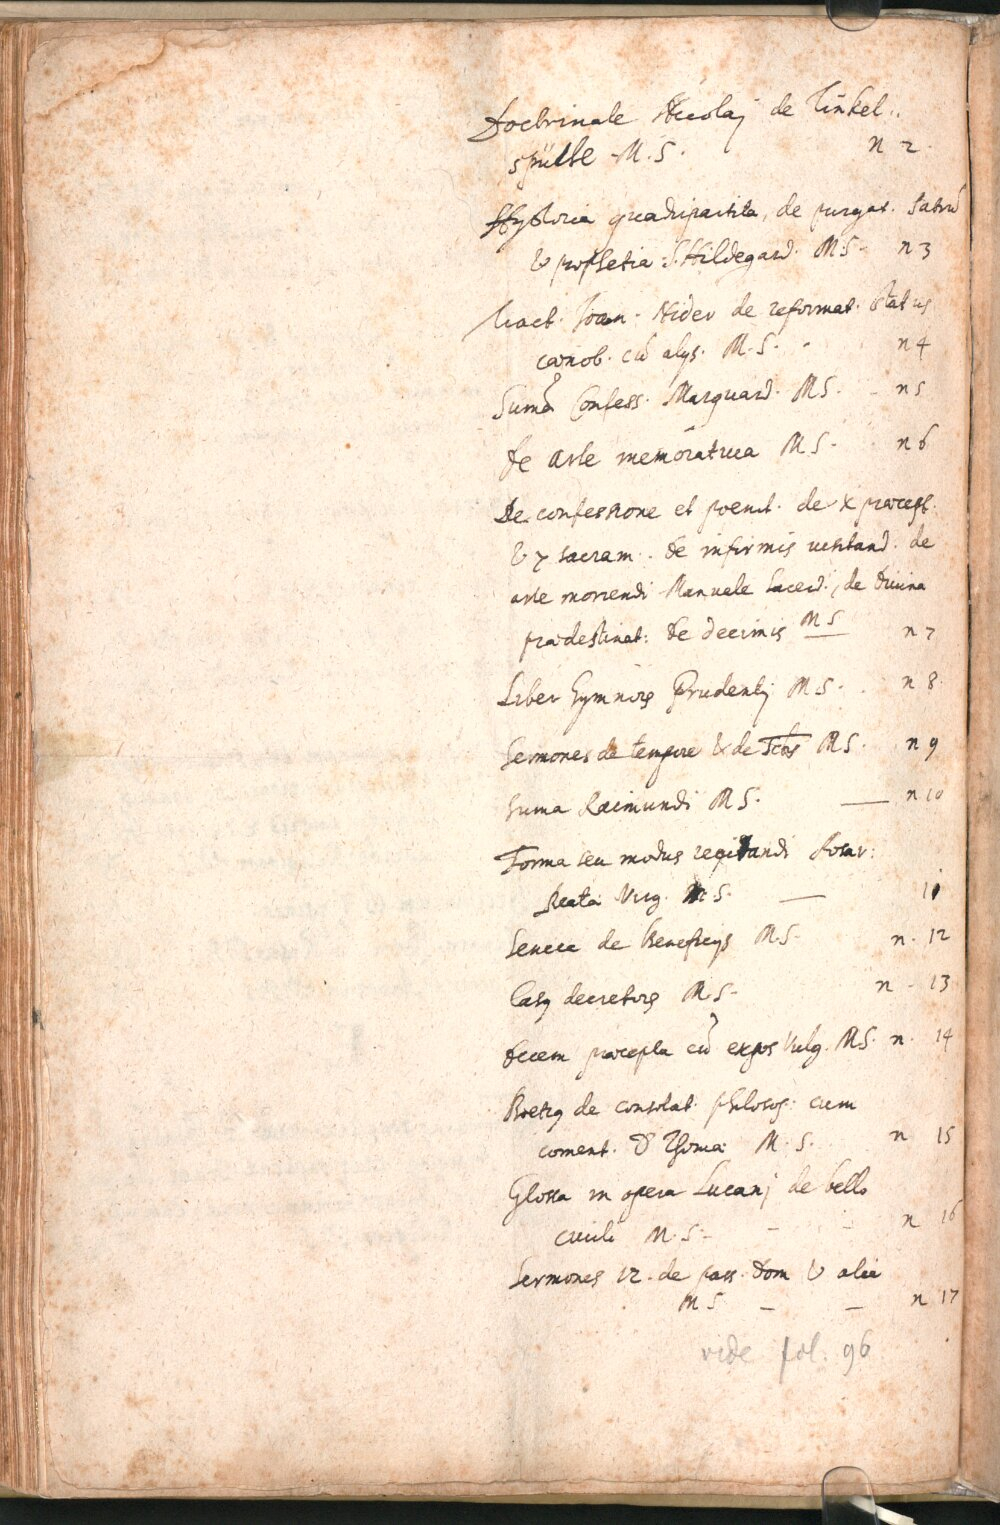 Doctrinale Nicolaj de Tinkel..
spülle M.S. n 2.
Hystoria quadripartita, de purgat. Patric̄
& prophetia S. Hildegard. M S. n 3
Tract. Joan. Nider de reformat. status
cœnob. cū alys. M. S. n 4
Sumā Confess. Marquard. M S. n 5
de arte memoratiua M S. n 6
De confessione et pœnit. de X præcept.
& 7 sacram. de infirmis uisitand. de
arte moriendi Manuale Sacerd., de diuina
prædestinat: de decimis M S n 7
Liber hymnorꝫ Prudentij M S. n 8
Sermones de tempore & de Sctis M S. n 9
Suma Raimundi M S. — n 10
Forma seu modus recitandi Rosar:
Beatæ Virg. M. S. — 11
Senecæ de Beneficys M. S. n. 12
Casꝰ decretorꝫ M. S. n - 13
decem præcepta cū expos Vulg. M S. n. 14
Boetiꝰ de consolat. philosop: cum
coment. D Thomæ M. S. n 15
Glossa in opera Lucanj de bello
ciuili M. S. - - n 16
Sermones 12. de pass. dom & alia
M S — — n 17
vide fol. 96